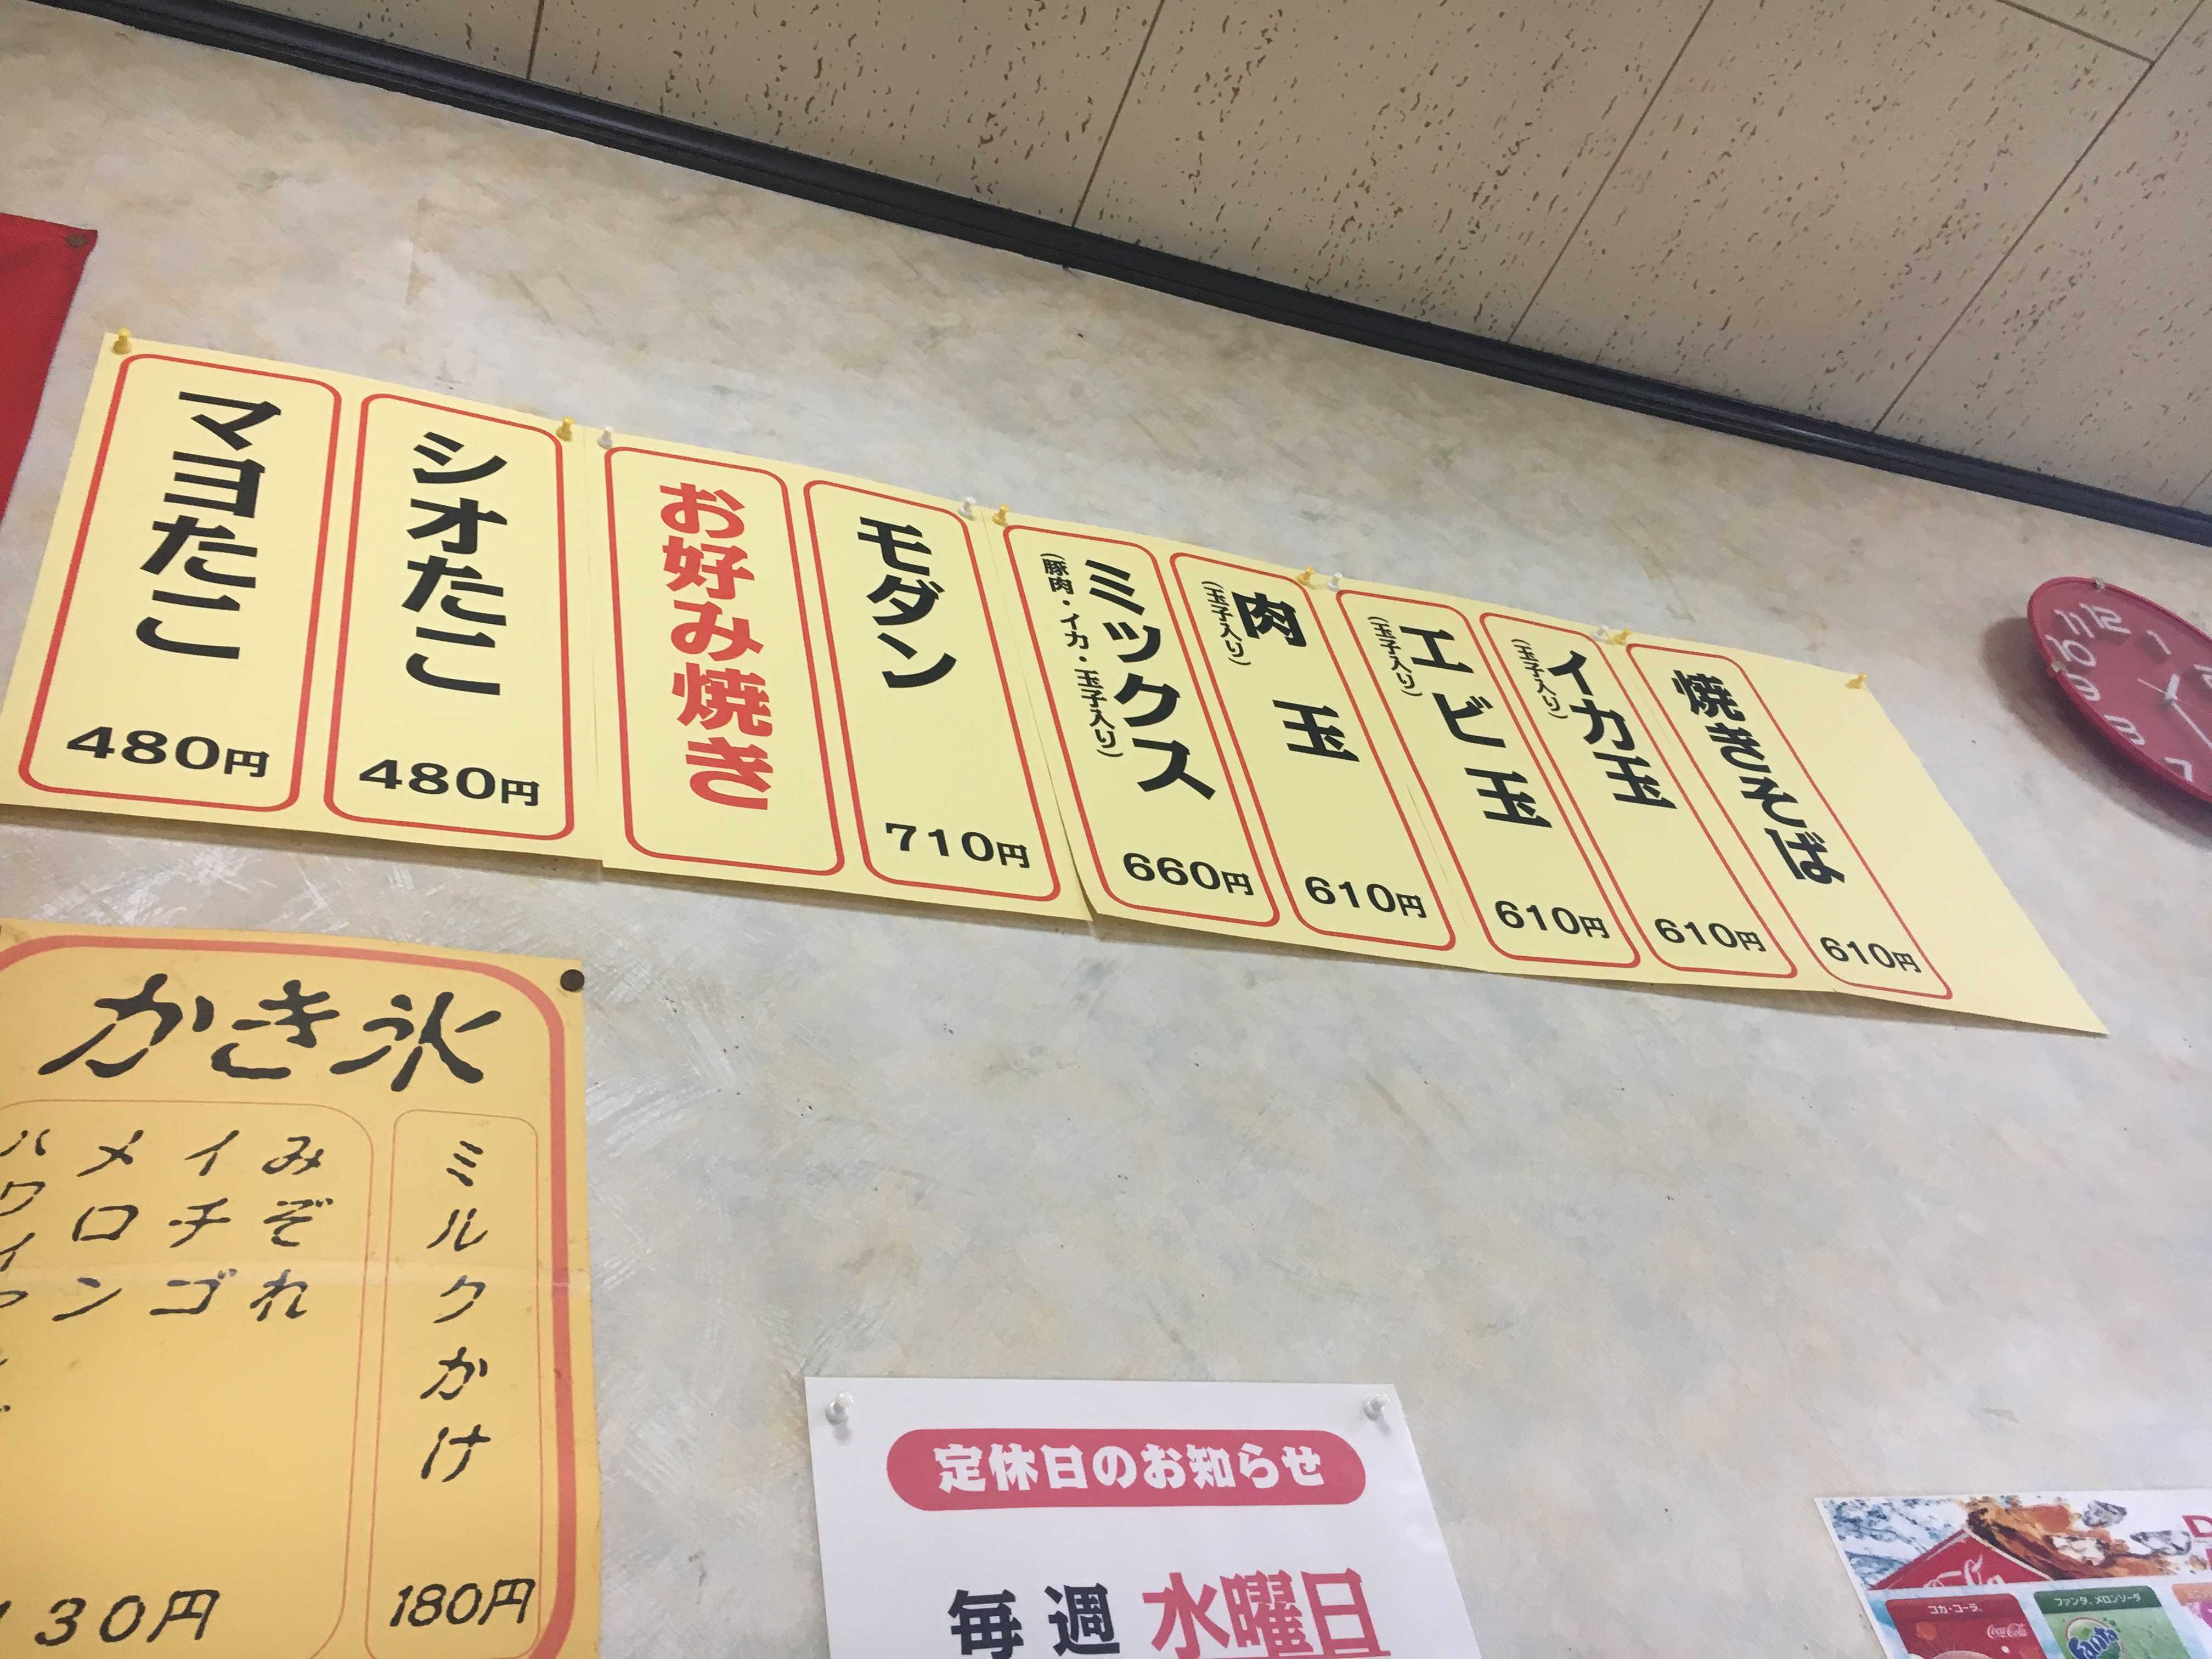 マヨたこ
480円
シオたこ
480円
お好み焼き
モダン
710円
ミックス
(豚肉・イカ・玉子入り)
660円
肉玉
(玉子入り)
610円
エビ玉
(玉子入り)
610円
イカ玉
(玉子入り)
610円
焼きそば
610円
11 12 1
10
9
8
7
かき氷
ミルクかけ
180円
みぞれ
イチゴ
メロン
30円
定休日のお知らせ
毎週 水曜日
コカ・コーラ
ファンタ メロンソーダ
Fanta